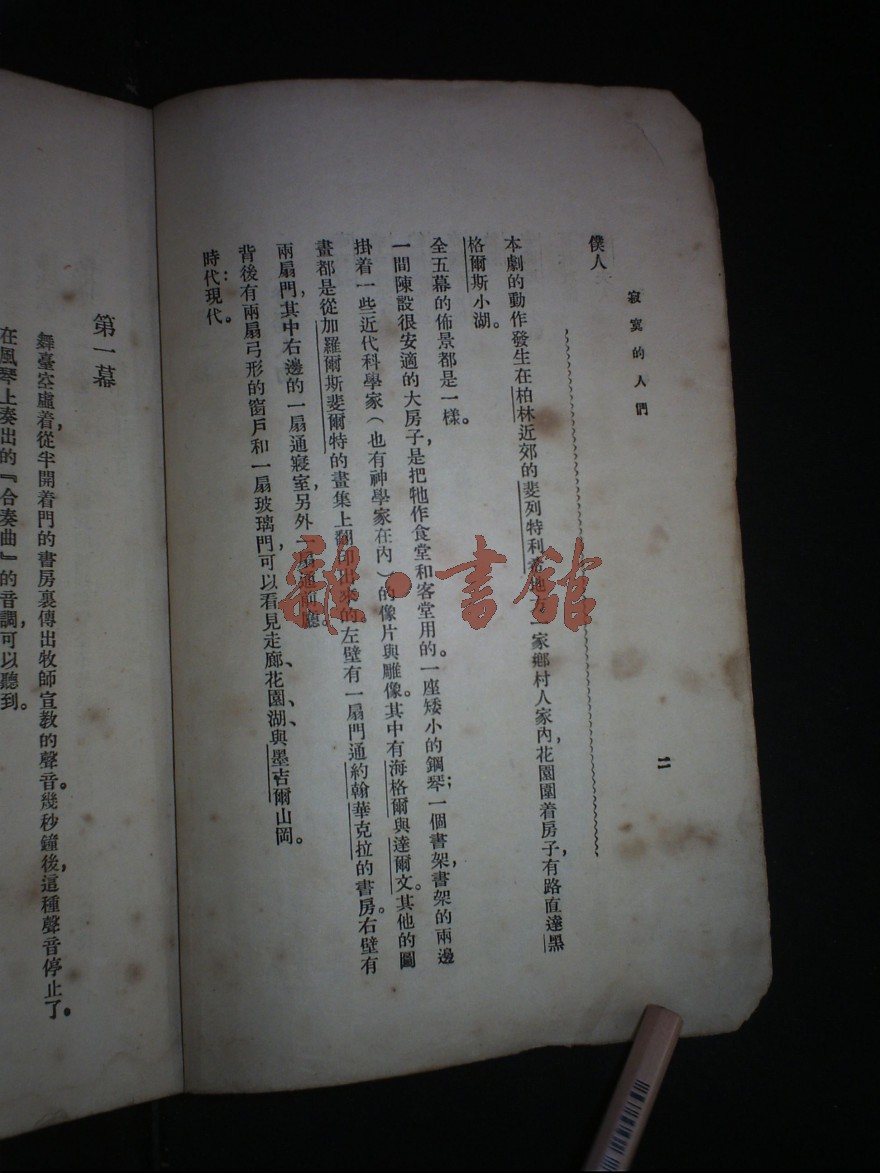 寂寞的人們
二
僕人
本劇的動作發生在柏林近郊的斐列特利希地方一家鄉村人家內，花園圍着房子，有路直達黑
格爾斯小湖。
全五幕的佈景都是一樣。
一間陳設很安適的大房子，是把牠作食堂和客堂用的。一座矮小的鋼琴；一個書架，書架的兩邊
掛着一些近代科學家（也有神學家在內）的像片與雕像。其中有海格爾與達爾文。其他的圖
畫都是從加羅爾斯斐爾特的畫集上翻印出來的。左壁有一扇門通約翰華克拉的書房。右壁有
兩扇門，其中右邊的一扇通寢室，另外一扇通前廳。
背後有兩扇弓形的窗戶和一扇玻璃門，可以看見走廊、花園、湖、與墨吉爾山岡。
時代：現代。
第一幕
舞臺空虛着，從半開着門的書房裏傳出牧師宣教的聲音。幾秒鐘後，這種聲音停止了。
在風琴上奏出的『合奏曲』的音調，可以聽到。
雜·書館